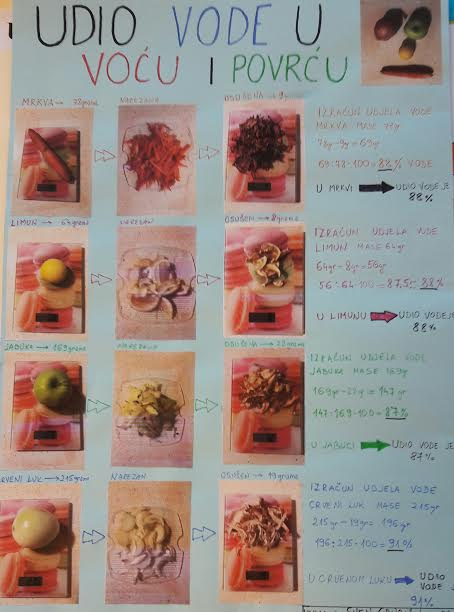 UDIO VODE U
VOĆU I POVRĆU
MRKVA → 78grama
NAREZANA
OSUŠENA → 9g
IZRAČUN UDJELA VODE
MRKVA MASE 78gr
78gr-9g=69gr
69:78·100=88% VODE
U MRKVI → UDIO VODE JE
88%
LIMUN → 64grama
NAREZAN
OSUŠEN → 8grama
IZRAČUN UDJELA VODE
LIMUN MASE 64gr
64gr-8gr=56gr
56:64·100=87.5≈88%
U LIMUNU → UDIO VODE JE
88%
JABUKA → 169grama
NAREZANA
OSUŠENA → 22grama
IZRAČUN UDJELA VODE
JABUKA MASE 169gr
169gr-22gr=147gr
147:169·100=87%
U JABUCI → UDIO VODE JE
87%
CRVENI LUK → 215grama
NAREZAN
OSUŠEN → 19grama
IZRAČUN UDJELA VODE
CRVENI LUK MASE 215gr
215gr-19gr=196gr
196:215·100=91%
U CRVENOM LUKU → UDIO
VODE
91%